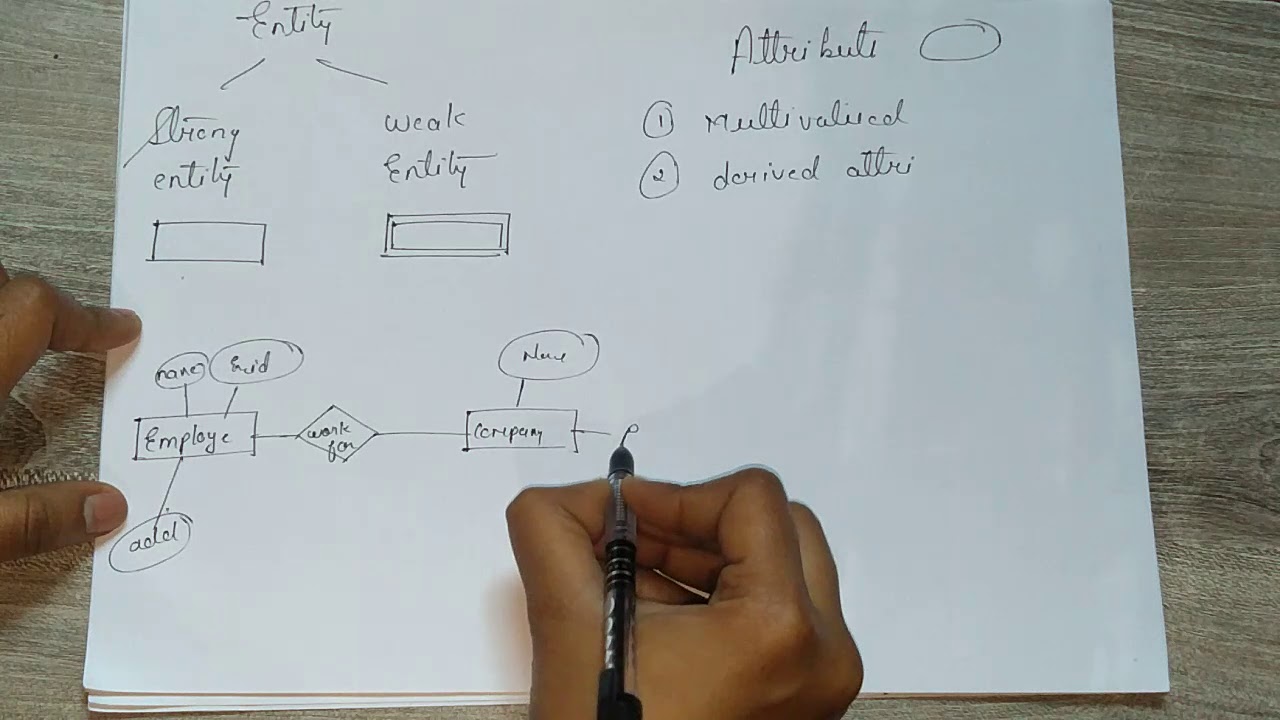 Entity
Strong
entity
weak
Entity
Attribute
1 Multivalued
2 derived attri
name
Employe
add
work
for
Name
Company